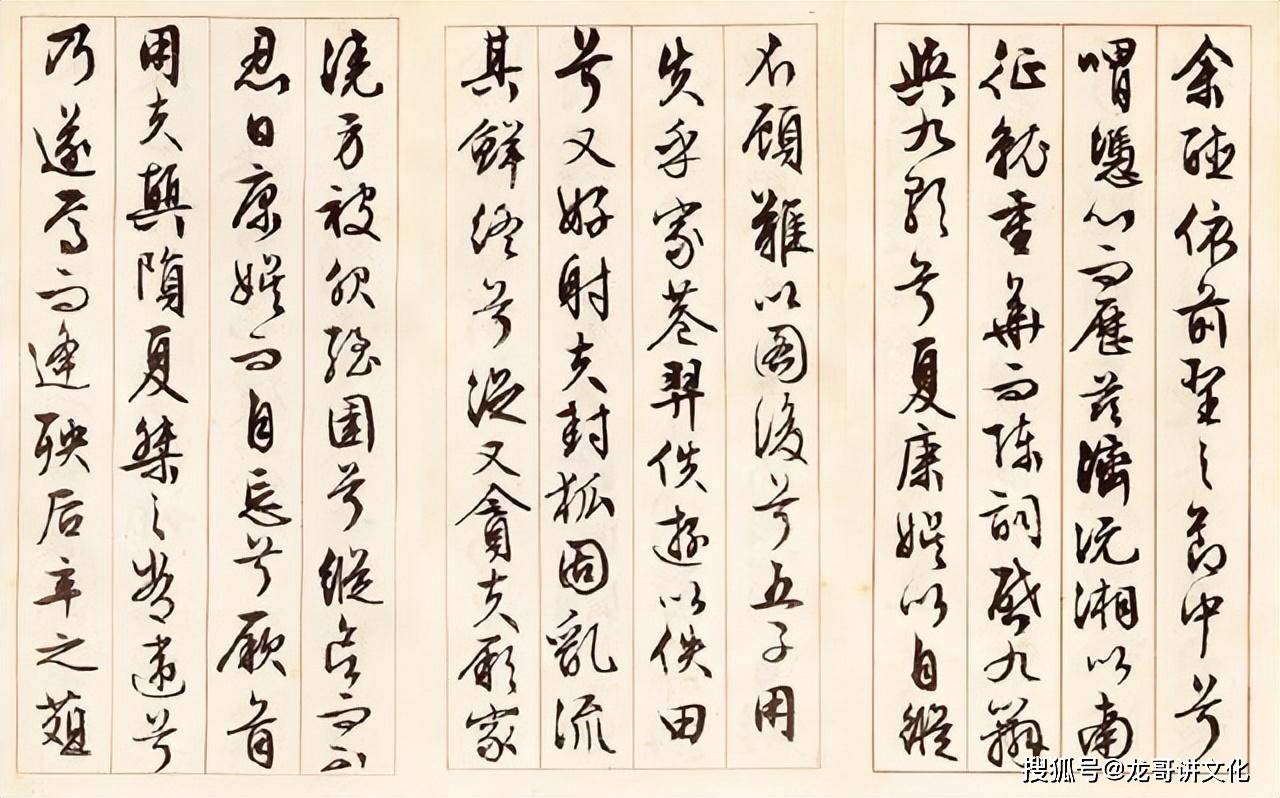 余聽依前聖之節中兮
喟憑心而歷茲濟沅湘以南
征就重華而陳詞啓九辯
與九歌兮夏康娛以自縱
不顧難以圖後兮五子用
失乎家巷羿佚遊以佚田
兮又好射夫封狐固亂流
其鮮終兮浞又貪夫厥家
澆身被服強圉兮縱欲而不
忍日康娛而自忘兮厥首
用夫顛隕夏桀之常違兮
乃遂焉而逢殃后辛之菹
搜狐号@龙哥讲文化